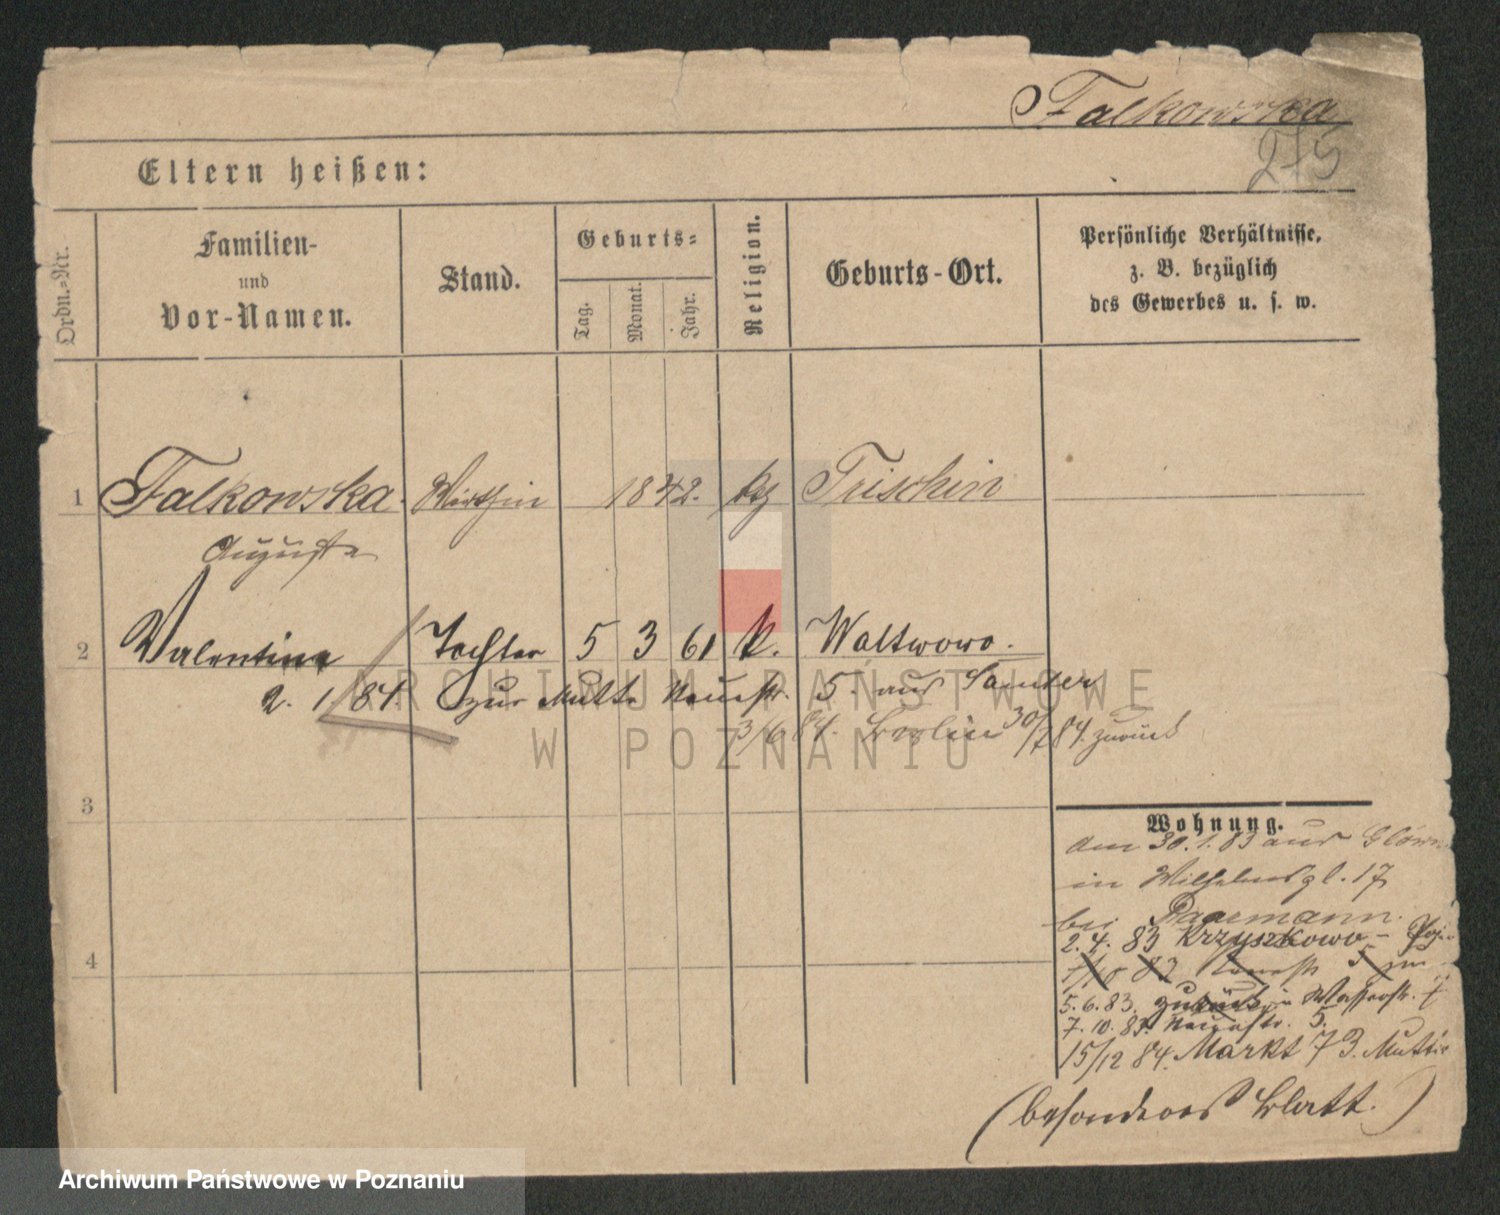 Falkowska
275
Eltern heißen:
Ordn.-Nr.
Familien-
und
Vor-Namen.
Stand.
Geburts-
Tag.
Monat.
Jahr.
Religion.
Geburts-Ort.
Persönliche Verhältnisse,
z. B. bezüglich
des Gewerbes u. s. w.
1 Falkowska. Wirthin 1842. Trischin
Auguste
2 Valentine Tochter 5 3 61 k. Waltwowo.
2. 1/84. zur Mutter Neuestr. 5. aus Samter
3/6 84. Berlin 30/7 84. zurück
3
4
Wohnung.
am 30.1.83 aus
in Wilhelmspl. 17
bei
2. 4. 83 Krzyszkowo-
5. 6. 83. zurück in Wasserstr. 7
7. 10. 83. Neuestr. 5.
15/12 84. Markt 73. Mutter
(besonderes Blatt.)
ARCHIWUM PAŃSTWOWE
W POZNANIU
Archiwum Państwowe w Poznaniu